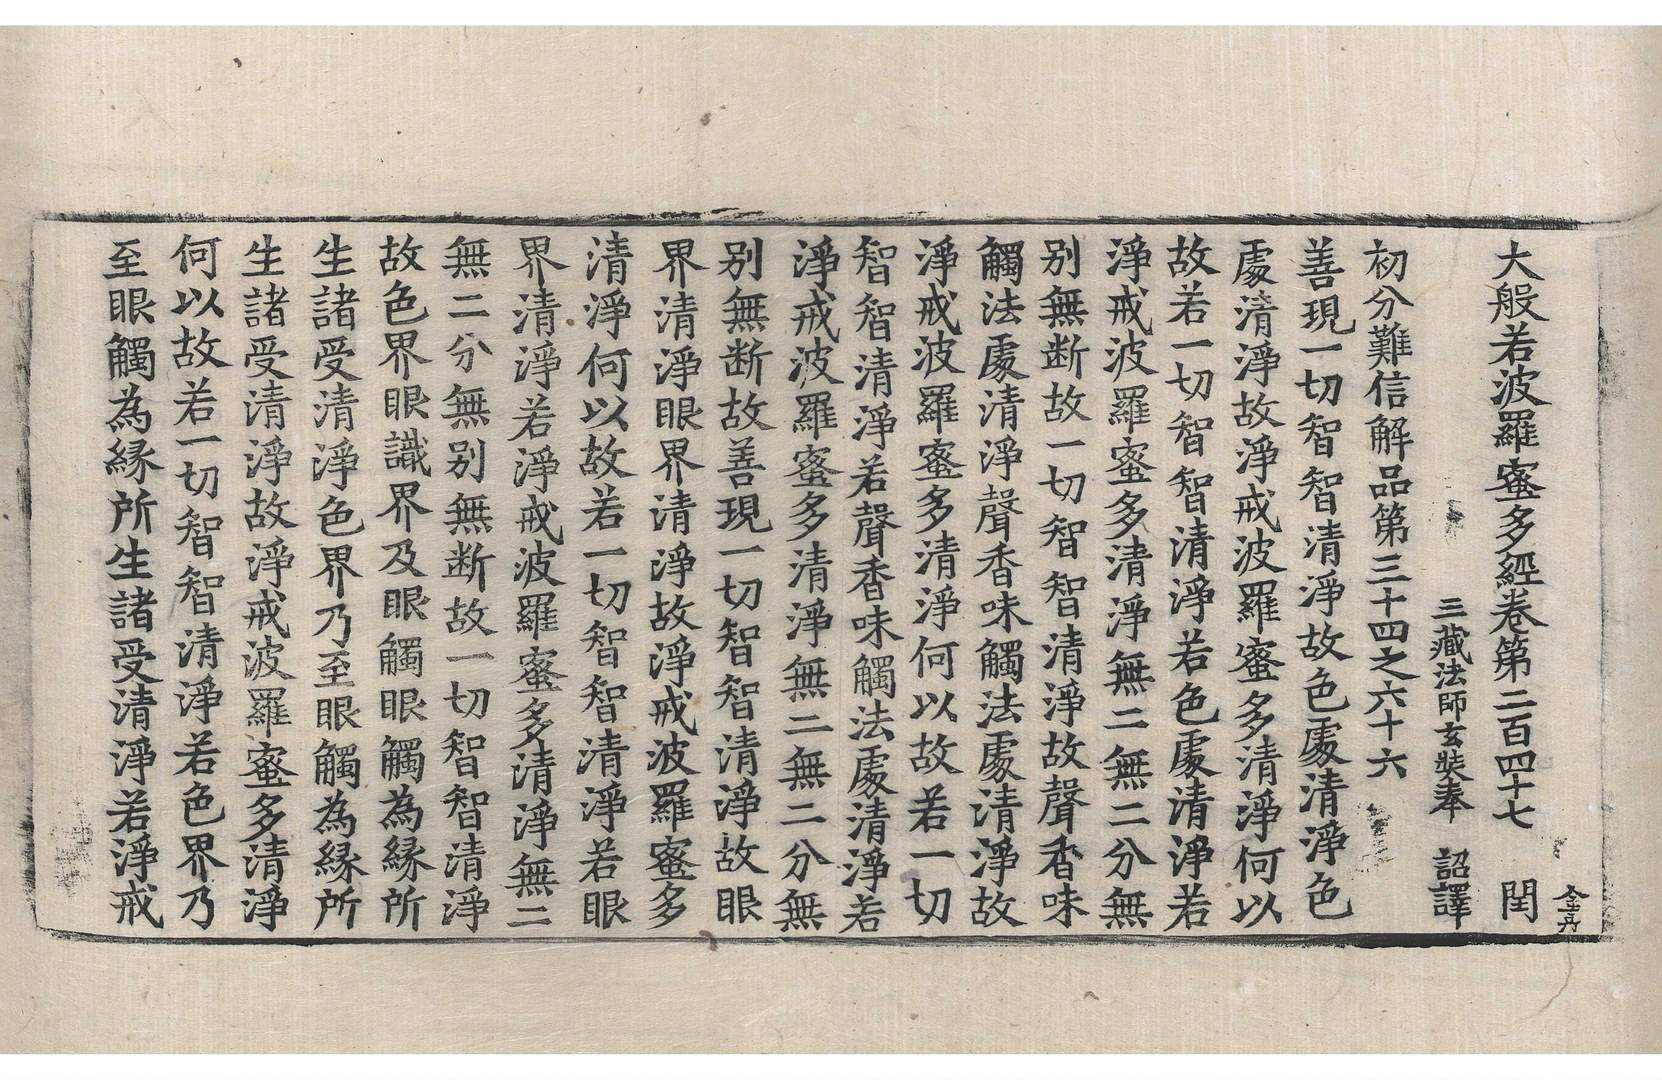 金丹
大般若波羅蜜多經卷第二百四十七　閏
三藏法師玄奘奉　詔譯
初分難信解品第三十四之六十六
善現一切智智清淨故色處清淨色
處清淨故淨戒波羅蜜多清淨何以
故若一切智智清淨若色處清淨若
淨戒波羅蜜多清淨無二無二分無
别無断故一切智智清淨故聲香味
觸法處清淨聲香味觸法處清淨故
淨戒波羅蜜多清淨何以故若一切
智智清淨若聲香味觸法處清淨若
淨戒波羅蜜多清淨無二無二分無
别無断故善現一切智智清淨故眼
界清淨眼界清淨故淨戒波羅蜜多
清淨何以故若一切智智清淨若眼
界清淨若淨戒波羅蜜多清淨無二
無二分無别無断故一切智智清淨
故色界眼識界及眼觸眼觸為縁所
生諸受清淨色界乃至眼觸為縁所
生諸受清淨故淨戒波羅蜜多清淨
何以故若一切智智清淨若色界乃
至眼觸為縁所生諸受清淨若淨戒